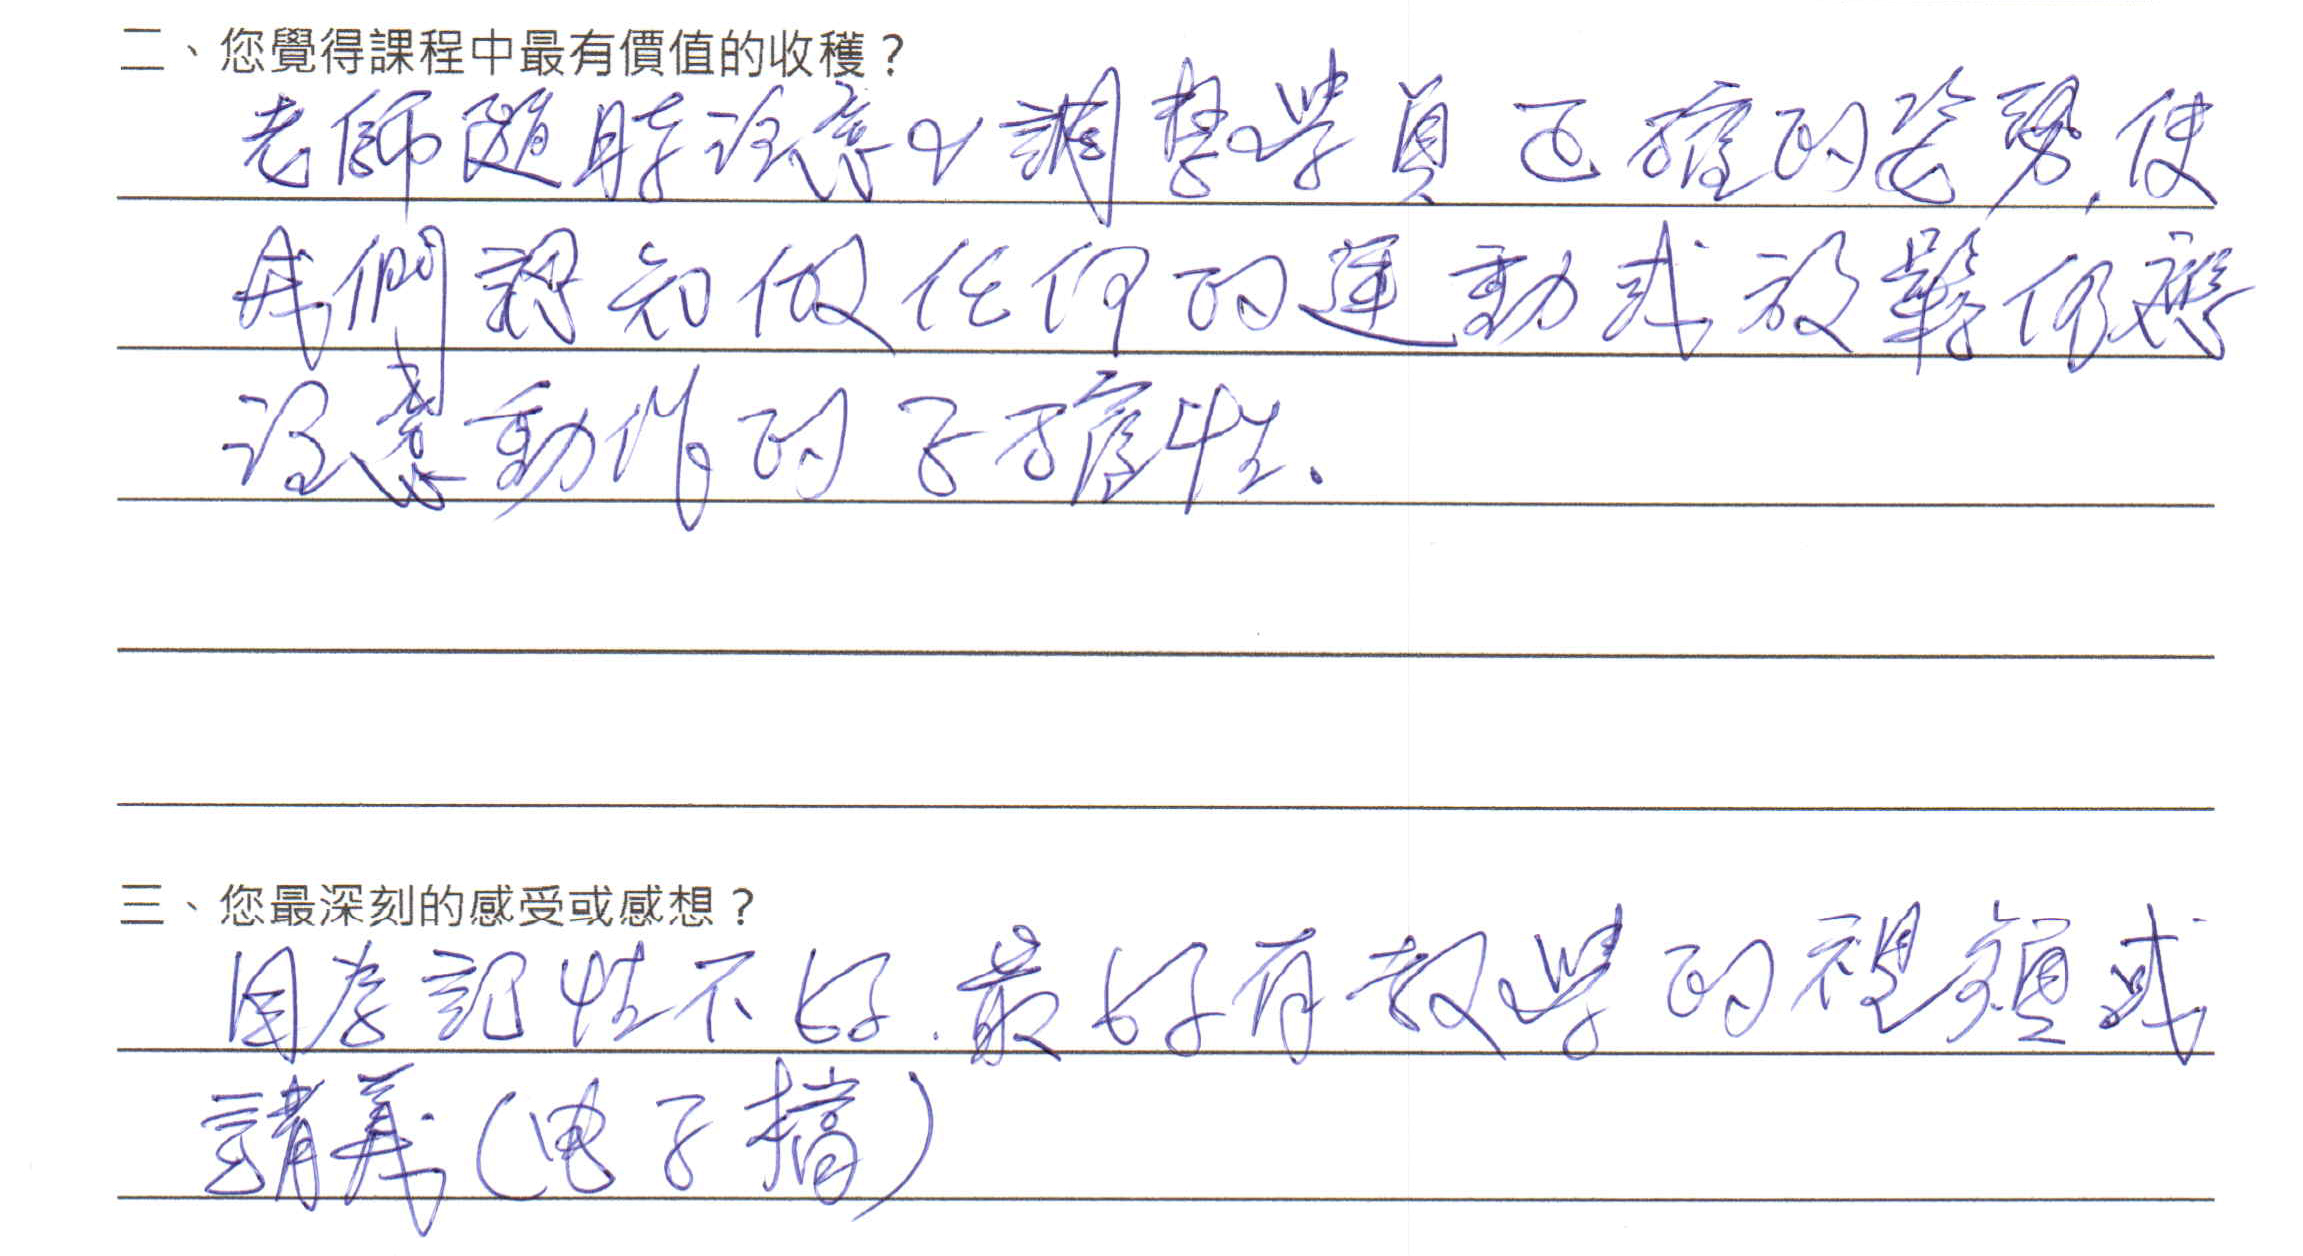 二、您覺得課程中最有價值的收穫？
老師隨時注意&調整學員正確的姿勢,使
我們認知做任何的運動或放鬆仍應
注意動作的正確性.
三、您最深刻的感受或感想？
因為記性不好.最好有教學的視頻或
講義(电子檔)